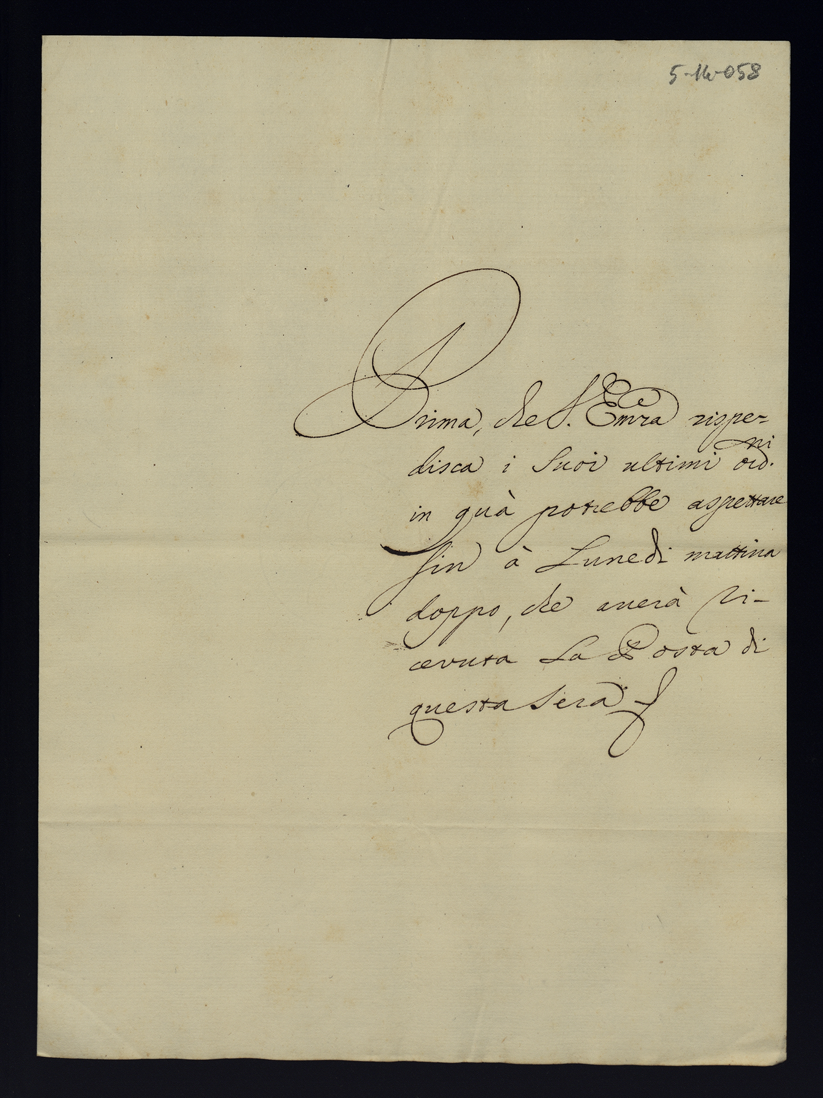 5-14-058
Prima, che S. Em̃za rispe=
disca i Suoi ultimi ord.ni
in quà potrebbe aspettare
sin à Lunedi mattina
doppo, che auerà ri=
cevuta La Posta di
questa Sera